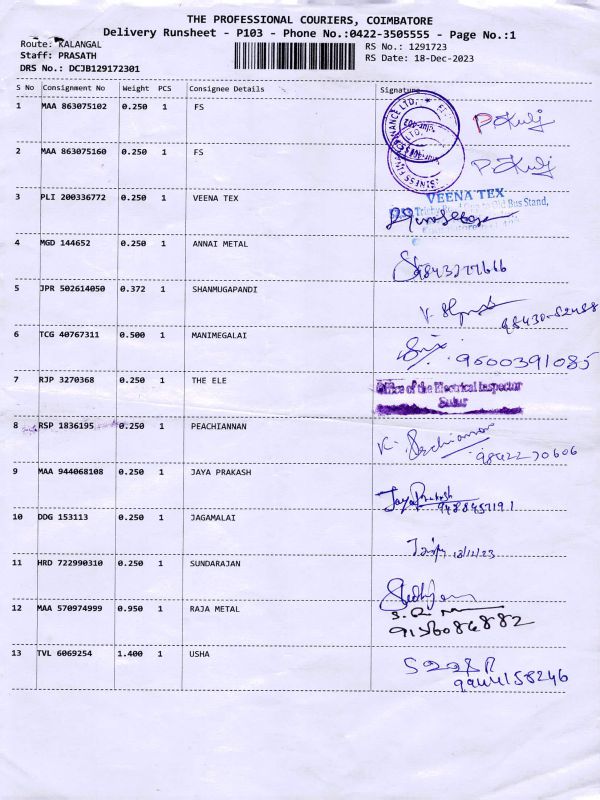 THE PROFESSIONAL COURIERS, COIMBATORE
Delivery Runsheet - P103 - Phone No.:0422-3505555 - Page No.:1
Route: KALANGAL
Staff: PRASATH
DRS No.: DCJB129172301
RS No.: 1291723
RS Date: 18-Dec-2023
S No Consignment No Weight PCS Consignee Details Signature
1 MAA 863075102 0.250 1 FS
2 MAA 863075160 0.250 1 FS
3 PLI 200336772 0.250 1 VEENA TEX
VEENA TEX
Bus Stand,
4 MGD 144652 0.250 1 ANNAI METAL
5 JPR 502614050 0.372 1 SHANMUGAPANDI
98430-52488
6 TCG 40767311 0.500 1 MANIMEGALAI
9600391085
7 RJP 3270368 0.250 1 THE ELE
Office of the Electrical Inspector
Sulur
8 RSP 1836195 0.250 1 PEACHIANNAN
98422 70606
9 MAA 944068108 0.250 1 JAYA PRAKASH
Jaya Prakash
10 DDG 153113 0.250 1 JAGAMALAI
11 HRD 722990310 0.250 1 SUNDARAJAN
12 MAA 570974999 0.950 1 RAJA METAL
13 TVL 6069254 1.400 1 USHA
9944158246